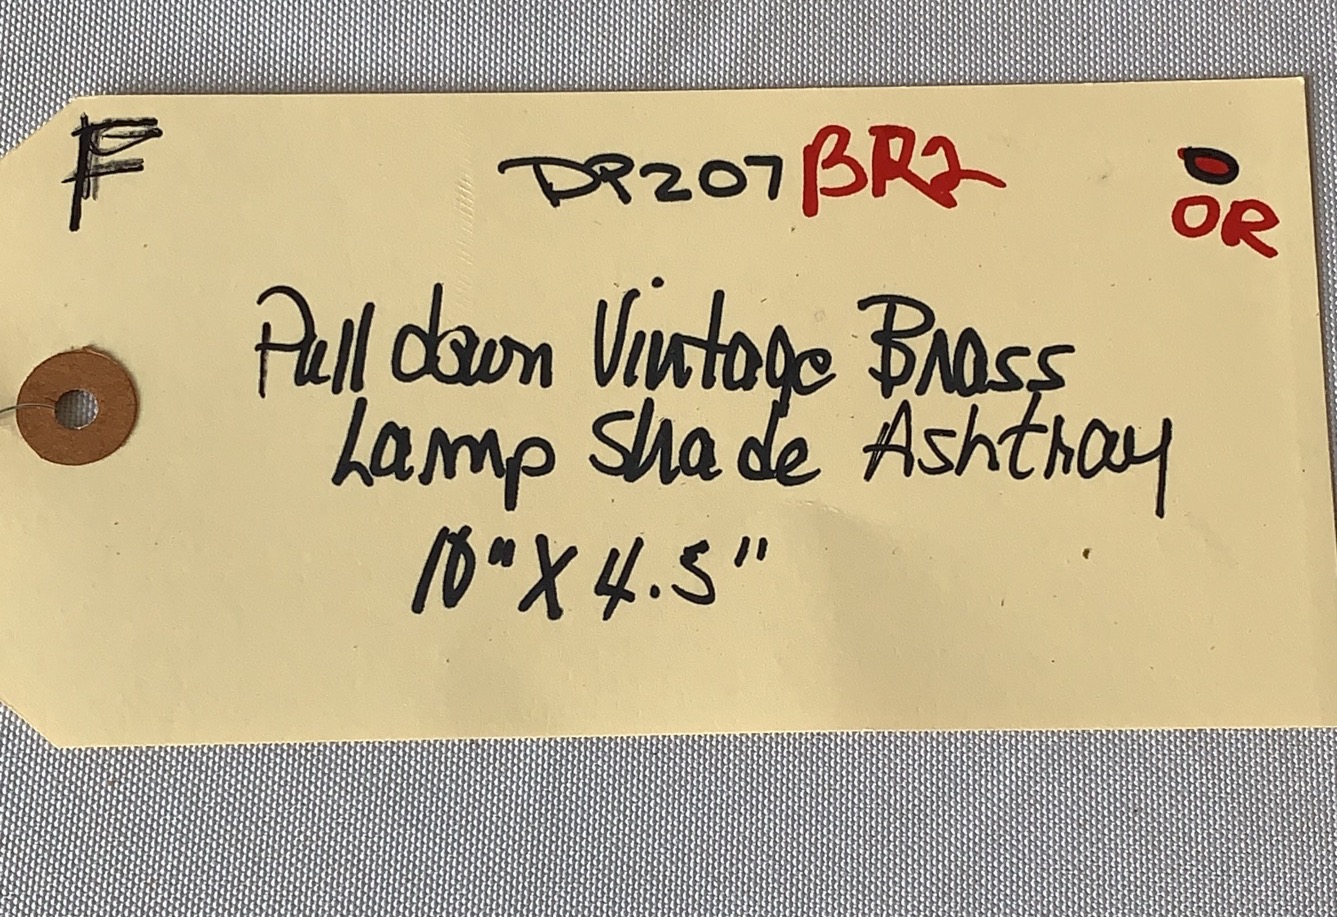 F DP207 BR2
OR
Pull down Vintage Brass
Lamp Shade Ashtray
10" X 4.5"